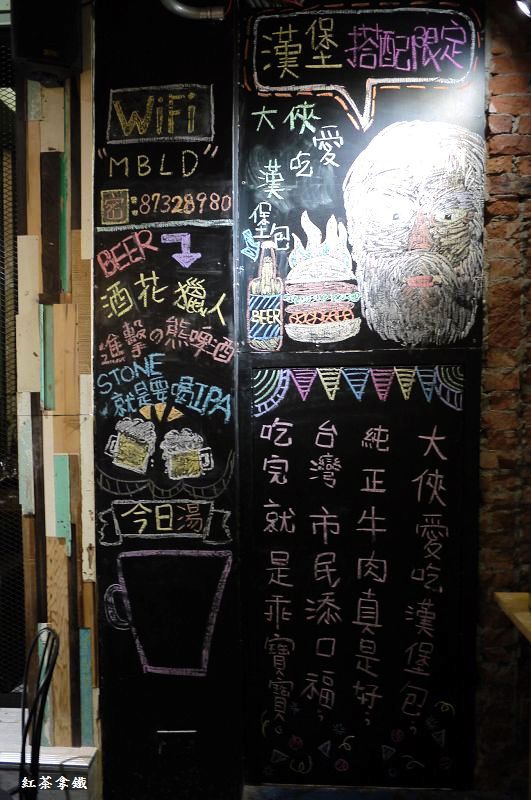 WiFi
"MBLD"
密:87328980
BEER
酒花獵人
進擊の熊啤酒
STONE
就是要喝IPA
今日湯
漢堡搭配限定
大俠愛
吃
漢
堡包
BEER
大俠愛吃漢堡包,
純正牛肉真是好,
台灣市民添口福,
吃完就是乖寶寶。
紅茶拿鐵